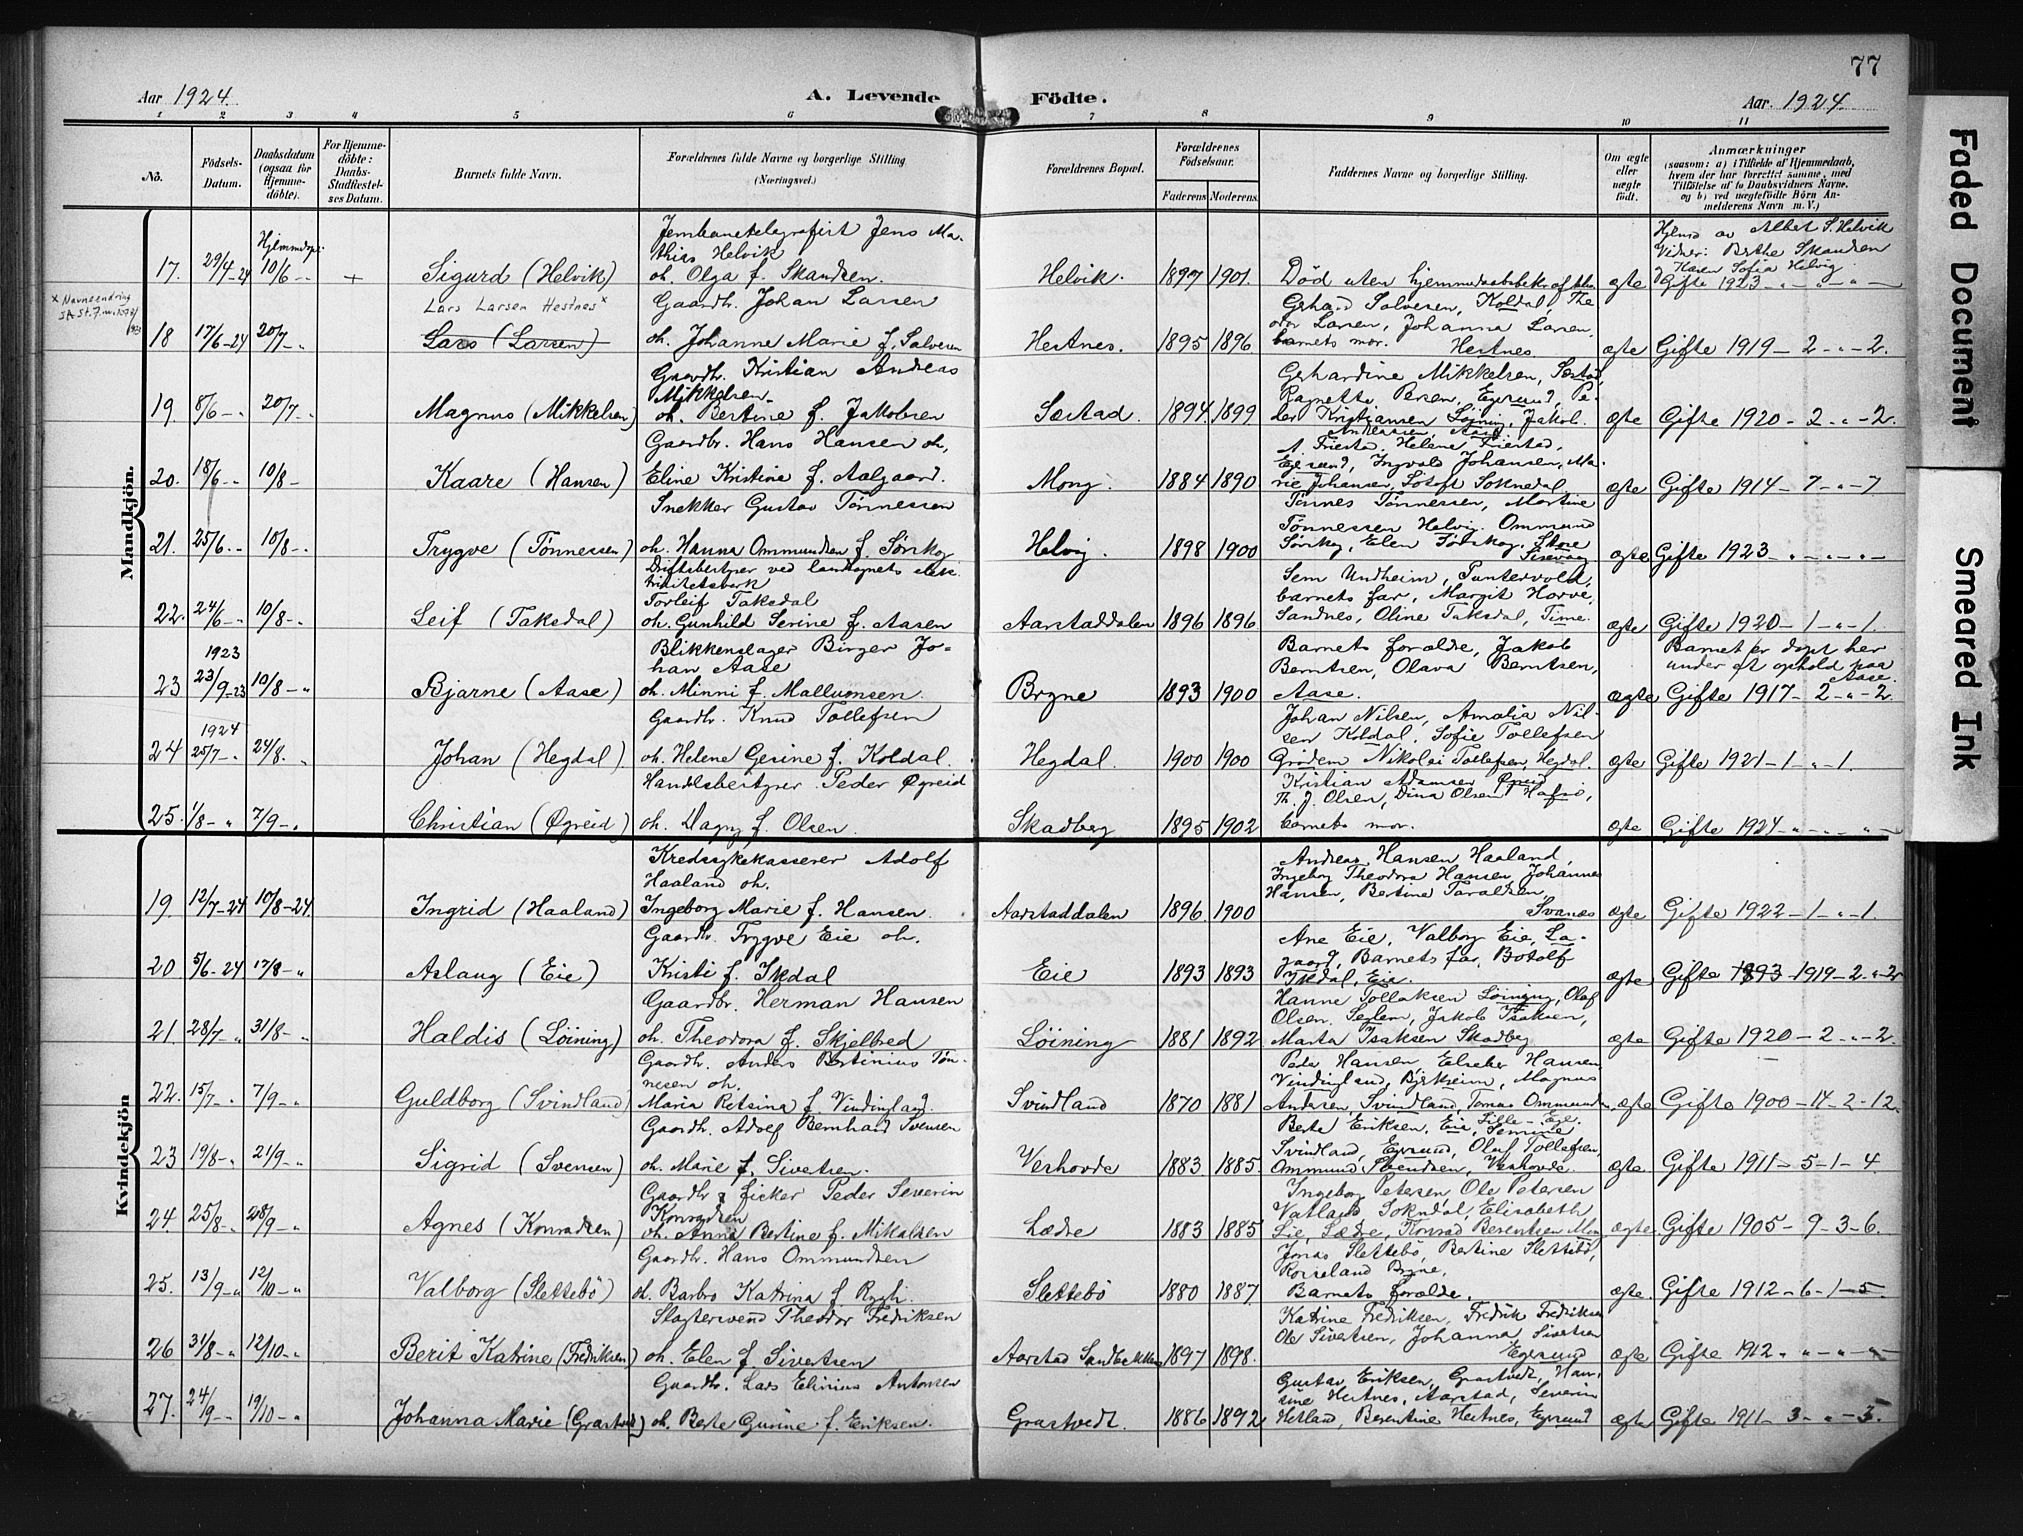 77
Aar 1924.
A. Levende Födte.
Aar. 1924.
1 2 3 4 5 6 7 8 9 10 11
No.
Födsels-Datum.
Daabsdatum (ogsaa for Hjemme-döbte).
For Hjemme-döbte: Daabs-Stadfæstel-ses Datum.
Barnets fulde Navn.
Forældrenes fulde Navne og borgerlige Stilling (Næringsvei.)
Forældrenes Bopæl.
Forældrenes Födselsaar.
Faderens Moderens
Faddernes Navne og borgerlige Stilling.
Om ægte eller uægte födt.
Anmærkninger
(saasom: a) i Tilfælde af Hjemmedaab,
hvem der har forrettet samme, med
Tilföielse af to Daabsvidners Navne,
og b) ved uægtefödte Börn An-
melderens Navn m. V.)
Mandkjön.
17. 29/4-24 Hjemmdöpt 10/6 - + Sigurd (Helvik)
Jernbanetelegrafist Jens Ma-
thias Helvik
oh. Olga f. Skandsen.
Helvik. 1897 1901.
Død uten hjemmedaabsbekræftelse
ægte
Hjemd av Albet S. Helvik
Vidner: Berthe Skandsen
Karen Sofia Helvig
Gifte 1923 - - -
x Navneendring
Lars Larsen Hestnes x
18 17/6-24 20/7 - Lars (Larsen)
Gaardbr. Johan Larsen
oh. Johanne Marie f. Salvesen
Hestnes. 1895 1896
Gerhard Salvesen, Koldal, The
odor Larsen, Johanna Larsen,
barnets mor. Hestnes
ægte Gifte 1919 - 2 - - 2.
19. 8/6 - 20/7 - Magnus (Mikkelsen)
Gaardbr. Kristian Andreas
Mikkelsen
oh. Bertine f. Jakobsen
Sæstad. 1894. 1899.
Gerhardine Mikkelsen, Sæstad,
Ragnette Persen, Egersund, Pe-
der Kristiansen Löining, Jakob
Andreassen Aase
ægte Gifte 1920 - 2 - - 2.
20. 18/6 - 10/8 - Kaare (Hansen)
Gaardbr. Hans Hansen oh,
Eline Kristine f. Aalgaard.
Mong. 1884 1890
A. Friestad, Helene Friestad,
Egersund, Ingvald Johansen, Ma-
rie Johansen, Sokndal
ægte Gifte 1914 - 7 - - 7
21. 25/6 - 10/8 - Trygve (Tönnessen)
Snekker Gustav Tönnessen
oh. Hanna Ommundsen f. Sörskog
Helvig. 1898 1900
Tönnes Tönnessen, Martine
Tönnessen Helvig. Ommund
Sörskog, Elen Sörskog, Store
Sirevaag
ægte Gifte 1923 - - - -
22. 24/6 - 10/8 - Leif (Taksdal)
Driftsbestyrer ved lansognets elek-
tricitetsverk
Torleif Taksdal
oh. Gunhild Serine f. Aasen
Aarstaddalen 1896 1896
Sem Undheim, Puntervold,
barnets far, Margit Horve,
Sandnes, Oline Taksdal, Time.
ægte Gifte 1920 - 1 - - 1.
1923
23 23/9-23 10/8 - Bjarne (Aase)
Blikkenslager Birger Jo-
han Aase
oh. Minni f. Mallumsen.
Bryne 1893 1900
Barnets foralde, Jakob
Berntsen, Olava Berntsen,
Aase.
Barnet er döpt her
under et ophold paa
Aase.
ægte Gifte 1917 - 2 - - 2.
1924
24 25/7 - 24/8. Johan (Hegdal)
Gaardbr. Knud Tollefsen
oh. Helene Gesine f. Koldal.
Hegdal. 1900 1900
Johan Nilsen, Amalia Nil-
sen Koldal, Sofie Tollefsen
Grödem Nikolai Tollefsen, Hegdal
ægte Gifte 1921 - 1 - - 1.
25. 1/8 - 7/9 - Christian (Øgreid)
Handlsbestyrer Peder Øgreid
oh. Dagny f. Olsen.
Skadberg 1895 1902
Kristian Adamsen Øgreid
Th. J. Olsen, Dina Olsen, Hafsö,
barnets mor.
ægte Gifte 1924 - - - -
Kvindekjön
19. 12/7-24 10/8-24. Ingrid (Haaland)
Kredssykekasserer Adolf
Haaland oh.
Ingeborg Marie f. Hansen.
Aarstaddalen 1896. 1900
Andreas Hansen Haaland,
Ingeborg Theodora Hansen, Johannes
Hansen, Bertine Taraldsen,
Svanæs
ægte Gifte 1922 - 1 - - 1
20 5/6-24 17/8 - Aslaug (Eie)
Gaardbr. Trygve Eie oh.
Kristi f. Ikdal
Eie 1893 1893
Ane Eie, Valborg Eie, La-
gaard, Barnets far, Botolf
Ikdal, Eie.
ægte Gifte 1893 - 1919 - 2 - - 2
21 28/7 - 31/8 - Haldis (Löining)
Gaardbr. Herman Hansen
oh. Theodora f. Skjelbred
Löining 1881 1892
Hanne Tollaksen Löining, Olaf
Olsen. Seglem, Jakob Isaksen,
Marta Isaksen Skadberg
ægte Gifte 1920 - 2 - - 2
22. 15/7 - 7/9 - Guldborg (Svindland)
Gaardbr. Anders Bertinius Tön-
nesen oh.
Maria Retsina f. Vindingland.
Svindland 1870 1881
Peder Hansen, Elseber Hansen
Vindingland, Bjerkreim, Magnus
Andersen, Svindland, Tomas Ommundsen,
ægte. Gifte 1900 - 14 - 2 - 12.
23 19/8 - 21/9 - Sigrid (Svensen)
Gaardbr. Adolf Bernhard Svensen
oh. Marie f. Sivertsen.
Veshovde 1883. 1885
Berte Eriksen, Eie,
Svindland, Egersund, Olaf Tollefsen,
Ommund Svendsen, Veshovde.
ægte. Gifte 1911 - 5 - 1 - 4
24. 25/8 - 28/9 - Agnes (Konradsen)
Gaardbr & fisker Peder Severin
Konradsen
oh. Anna Bertine f. Mikalsen
Lædre 1883 1885
Ingeborg Petersen, Ole Petersen
Vatland Sokndal, Elisabeth
Lie, Lædre, Konrad Berentsen
ægte. Gifte 1905 - 9 - 3 - 6.
25. 13/9 - 12/10 - Valborg (Slettebö)
Gaardbr. Hans Ommundsen
oh. Barbro Katrina f. Rygh.
Slettebö 1880 1887.
Jonas Slettebö, Bertine Slettebö,
Rosseland Bryne,
Barnets foralde.
ægte. Gifte 1912 - 6 - 1 - 5.
26 31/8 - 12/10 - Berit Katrine (Fredriksen)
Slagtersvend Theodor Fredriksen
oh. Elen f. Sivertsen
Aarstad Sandbekken 1897 1898.
Katrine Fredriksen, Fredrik Fredriksen
Ole Sivertsen, Johanna Sivertsen
Egersund
ægte Gifte 1912 - - - -
27. 24/9 - 19/10 - Johanna Marie (Grastvedt)
Gaardbr. Lars Elinius Antonsen
oh. Berte Gurine f. Eriksen.
Grastvedt. 1886 1892
Gustav Eriksen, Grastvedt, Han-
sine Hestnes, Aarstad, Severin
Hetland, Berentine Hestnes, Egersund
ægte Gifte 1911 - 3 - - 3.
Faded Document
Smeared Ink